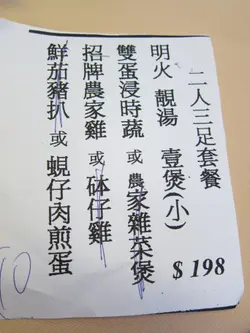 二人三足套餐
明火 靚湯 壹煲(小)
雙蛋浸時蔬 或 農家雜菜煲
招牌農家雞 或 砵仔雞
鮮茄豬扒 或 蜆仔肉煎蛋
$ 198